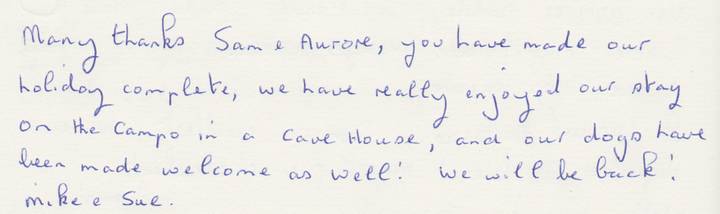 Many thanks Sam e Aurore, you have made our
holiday complete, we have really enjoyed our stay
on the Campo in a Cave House, and our dogs have
been made welcome as well! we will be back!
mike e Sue.